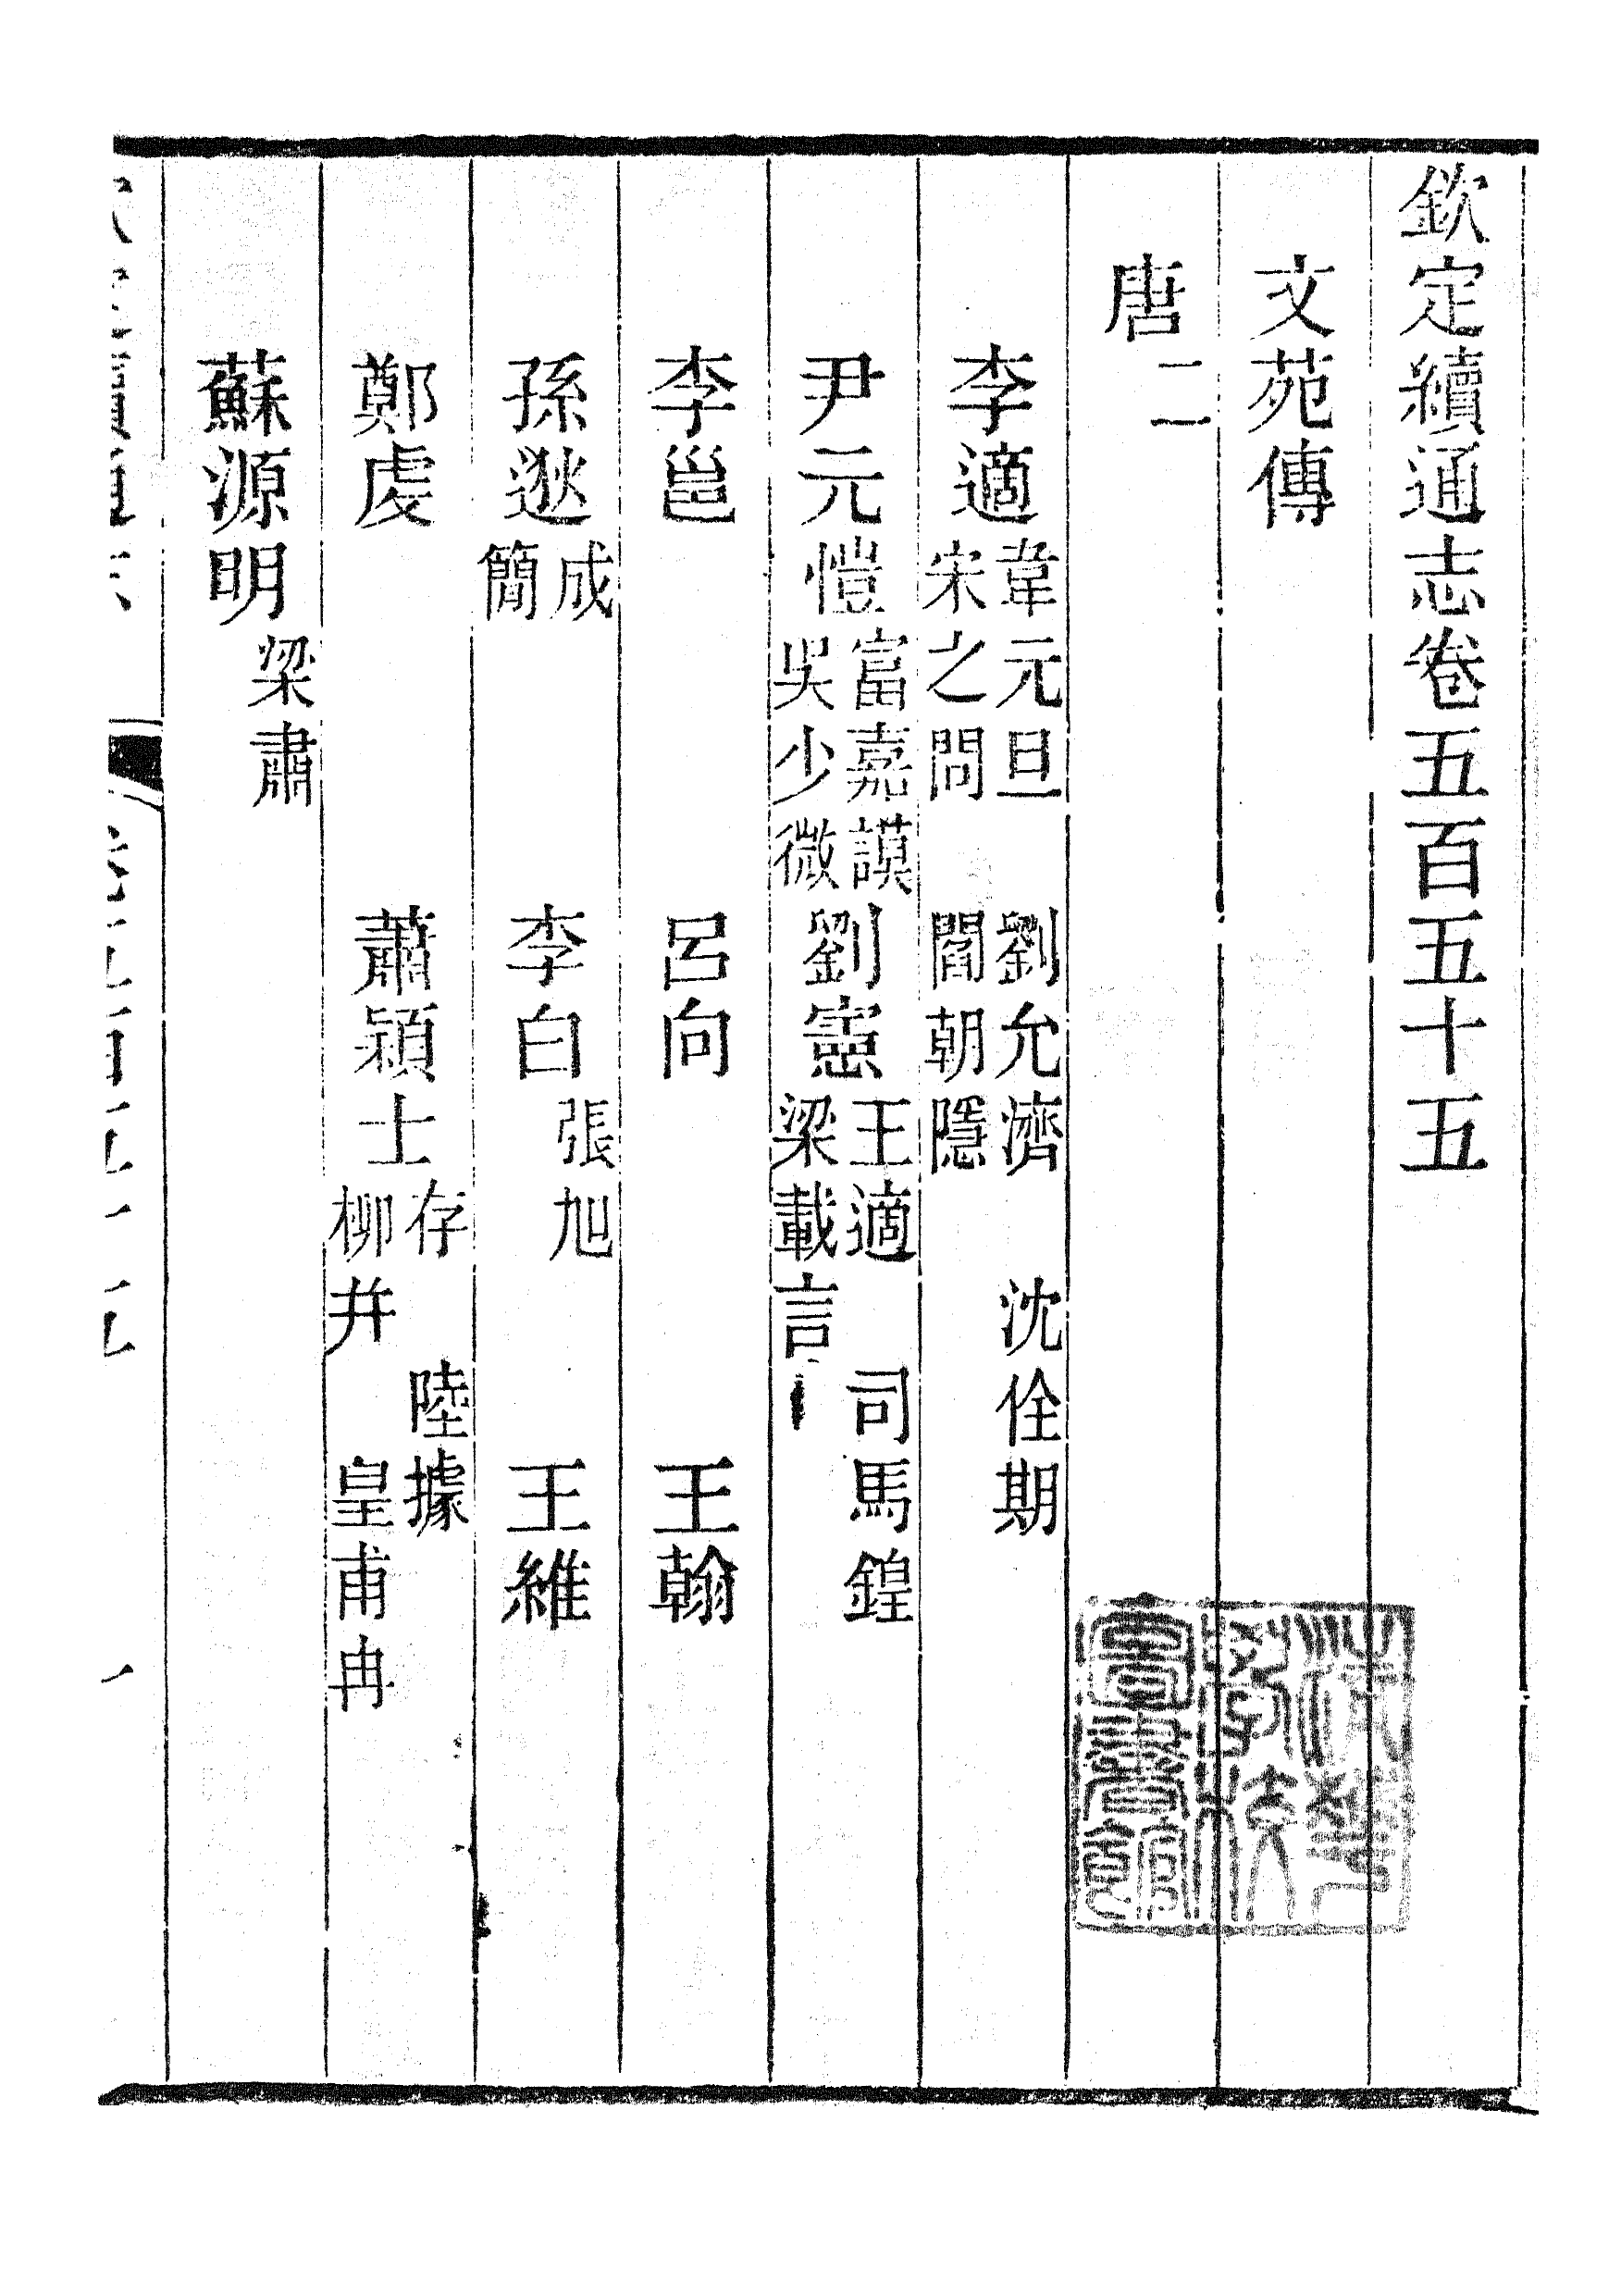 欽定續通志卷五百五十五
文苑傳
唐二
李適韋元旦 劉允濟 沈佺期宋之問 閻朝隱
尹元愷富嘉謨吳少微劉憲王適 司馬鍠梁載言
李邕 呂向 王翰
孫逖成簡 李白張旭 王維
鄭虔 蕭穎士存 陸據柳并 皇甫冉
蘇源明梁肅
清華學校圖書館